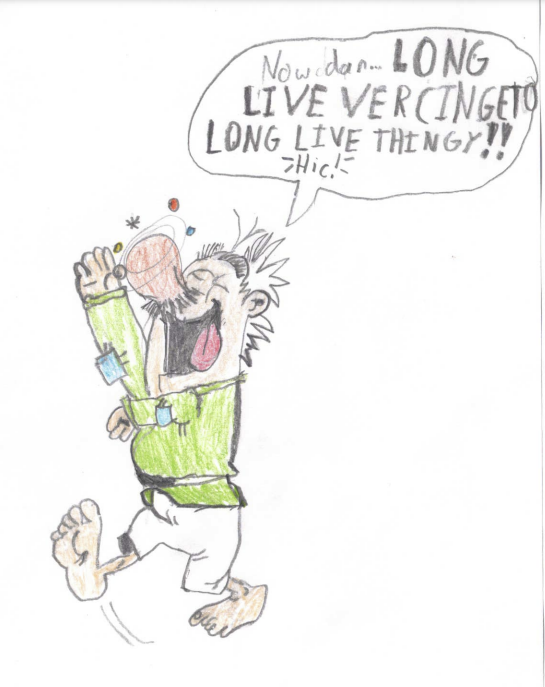 Now dan... LONG
LIVE VERCINGETO
LONG LIVE THINGY!!
Hic!